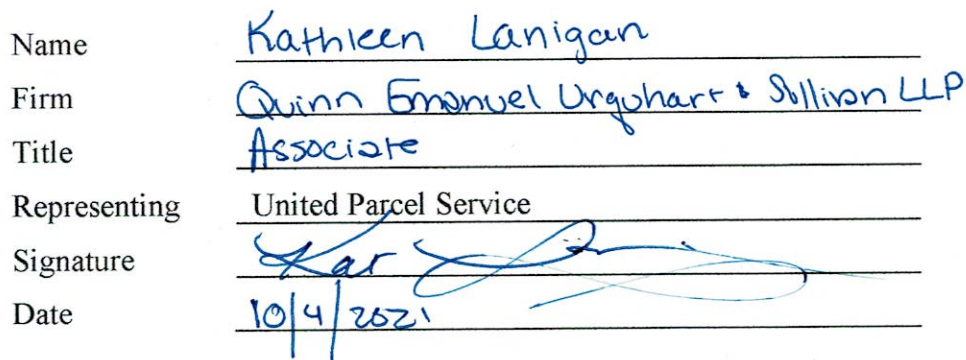 Name Kathleen Lanigan
Firm Quinn Emanuel Urquhart & Sullivan LLP
Title Associate
Representing United Parcel Service
Signature Kat
Date 10/4/2021